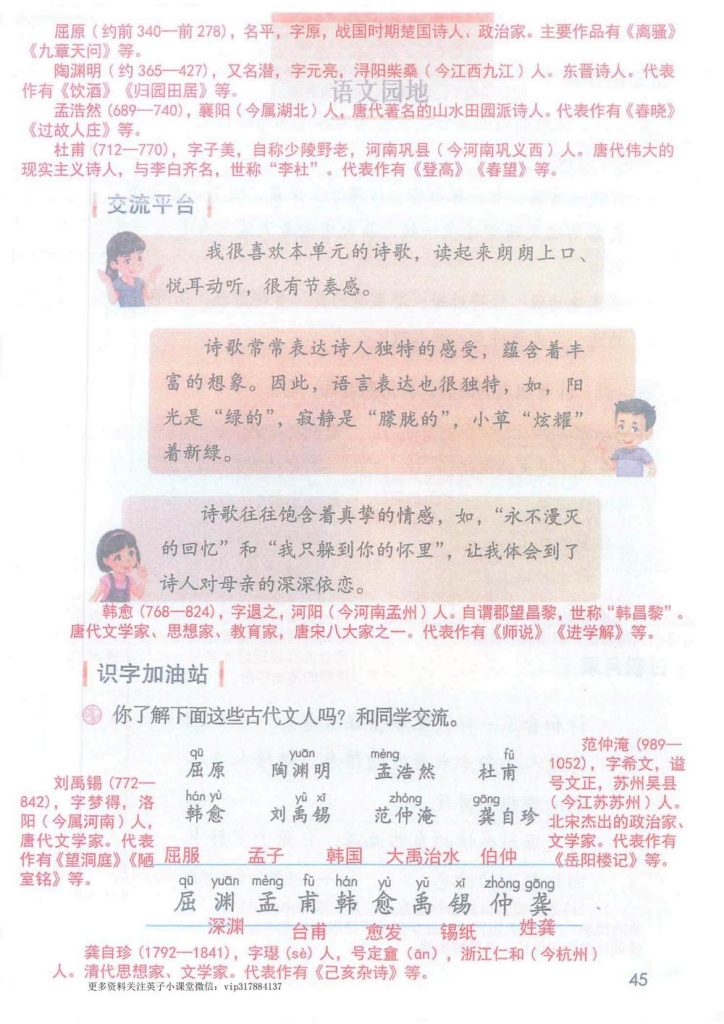 屈原（约前340—前278），名平，字原，战国时期楚国诗人、政治家。主要作品有《离骚》
《九章天问》等。
陶渊明（约365—427），又名潜，字元亮，浔阳柴桑（今江西九江）人。东晋诗人。代表
作有《饮酒》《归园田居》等。
语文园地
孟浩然（689—740），襄阳（今属湖北）人，唐代著名的山水田园派诗人。代表作有《春晓》
《过故人庄》等。
杜甫（712—770），字子美，自称少陵野老，河南巩县（今河南巩义西）人。唐代伟大的
现实主义诗人，与李白齐名，世称“李杜”。代表作有《登高》《春望》等。
交流平台
我很喜欢本单元的诗歌，读起来朗朗上口、
悦耳动听，很有节奏感。
诗歌常常表达诗人独特的感受，蕴含着丰
富的想象。因此，语言表达也很独特，如，阳
光是“绿的”，寂静是“朦胧的”，小草“炫耀”
着新绿。
诗歌往往饱含着真挚的情感，如，“永不漫灭
的回忆”和“我只躲到你的怀里”，让我体会到了
诗人对母亲的深深依恋。
韩愈（768—824），字退之，河阳（今河南孟州）人。自谓郡望昌黎，世称“韩昌黎”。
唐代文学家、思想家、教育家，唐宋八大家之一。代表作有《师说》《进学解》等。
识字加油站
你了解下面这些古代文人吗？和同学交流。
qū yuān mèng fǔ
屈原 陶渊明 孟浩然 杜甫
hán yù yǔ xī zhòng gōng
韩愈 刘禹锡 范仲淹 龚自珍
范仲淹（989—
1052），字希文，谥
号文正，苏州吴县
（今江苏苏州）人。
北宋杰出的政治家、
文学家。代表作有
《岳阳楼记》等。
刘禹锡（772—
842），字梦得，洛
阳（今属河南）人，
唐代文学家。代表
作有《望洞庭》《陋
室铭》等。
屈服 孟子 韩国 大禹治水 伯仲
qū yuān mèng fǔ hán yù yǔ xī zhòng gōng
屈 渊 孟 甫 韩 愈 禹 锡 仲 龚
深渊 台甫 愈发 锡纸 姓龚
龚自珍（1792—1841），字璱（sè）人，号定盦（ān），浙江仁和（今杭州）
人。清代思想家、文学家。代表作有《己亥杂诗》等。
更多资料关注英子小课堂微信：vip317884137
45